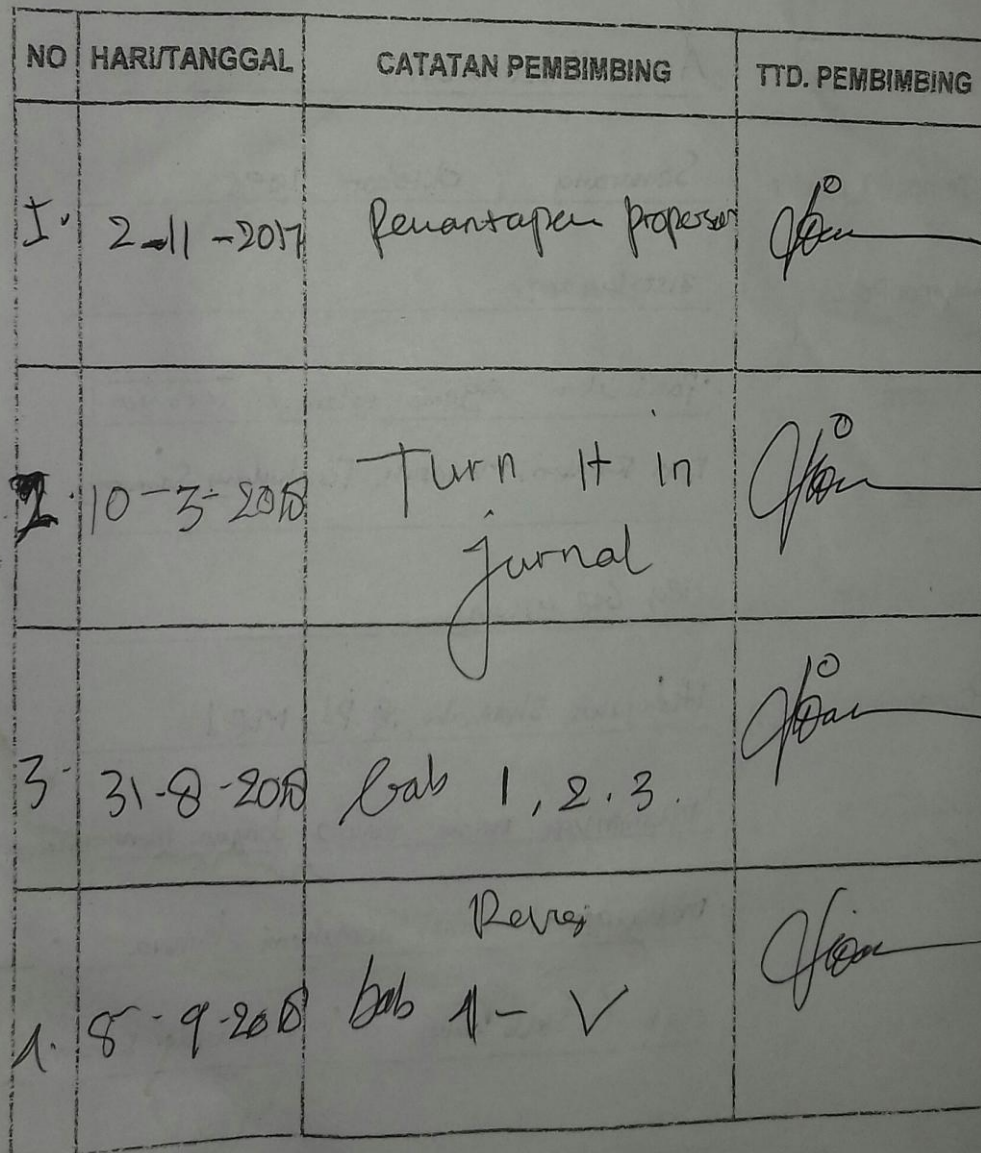 NO HARI/TANGGAL CATATAN PEMBIMBING TTD. PEMBIMBING
I. 2-11-2017 Pemantapan proposal
2. 10-3-2018 Turn It in
jurnal
3. 31-8-2018 bab 1, 2, 3.
Revisi
4. 8-9-2018 bab 1 - V